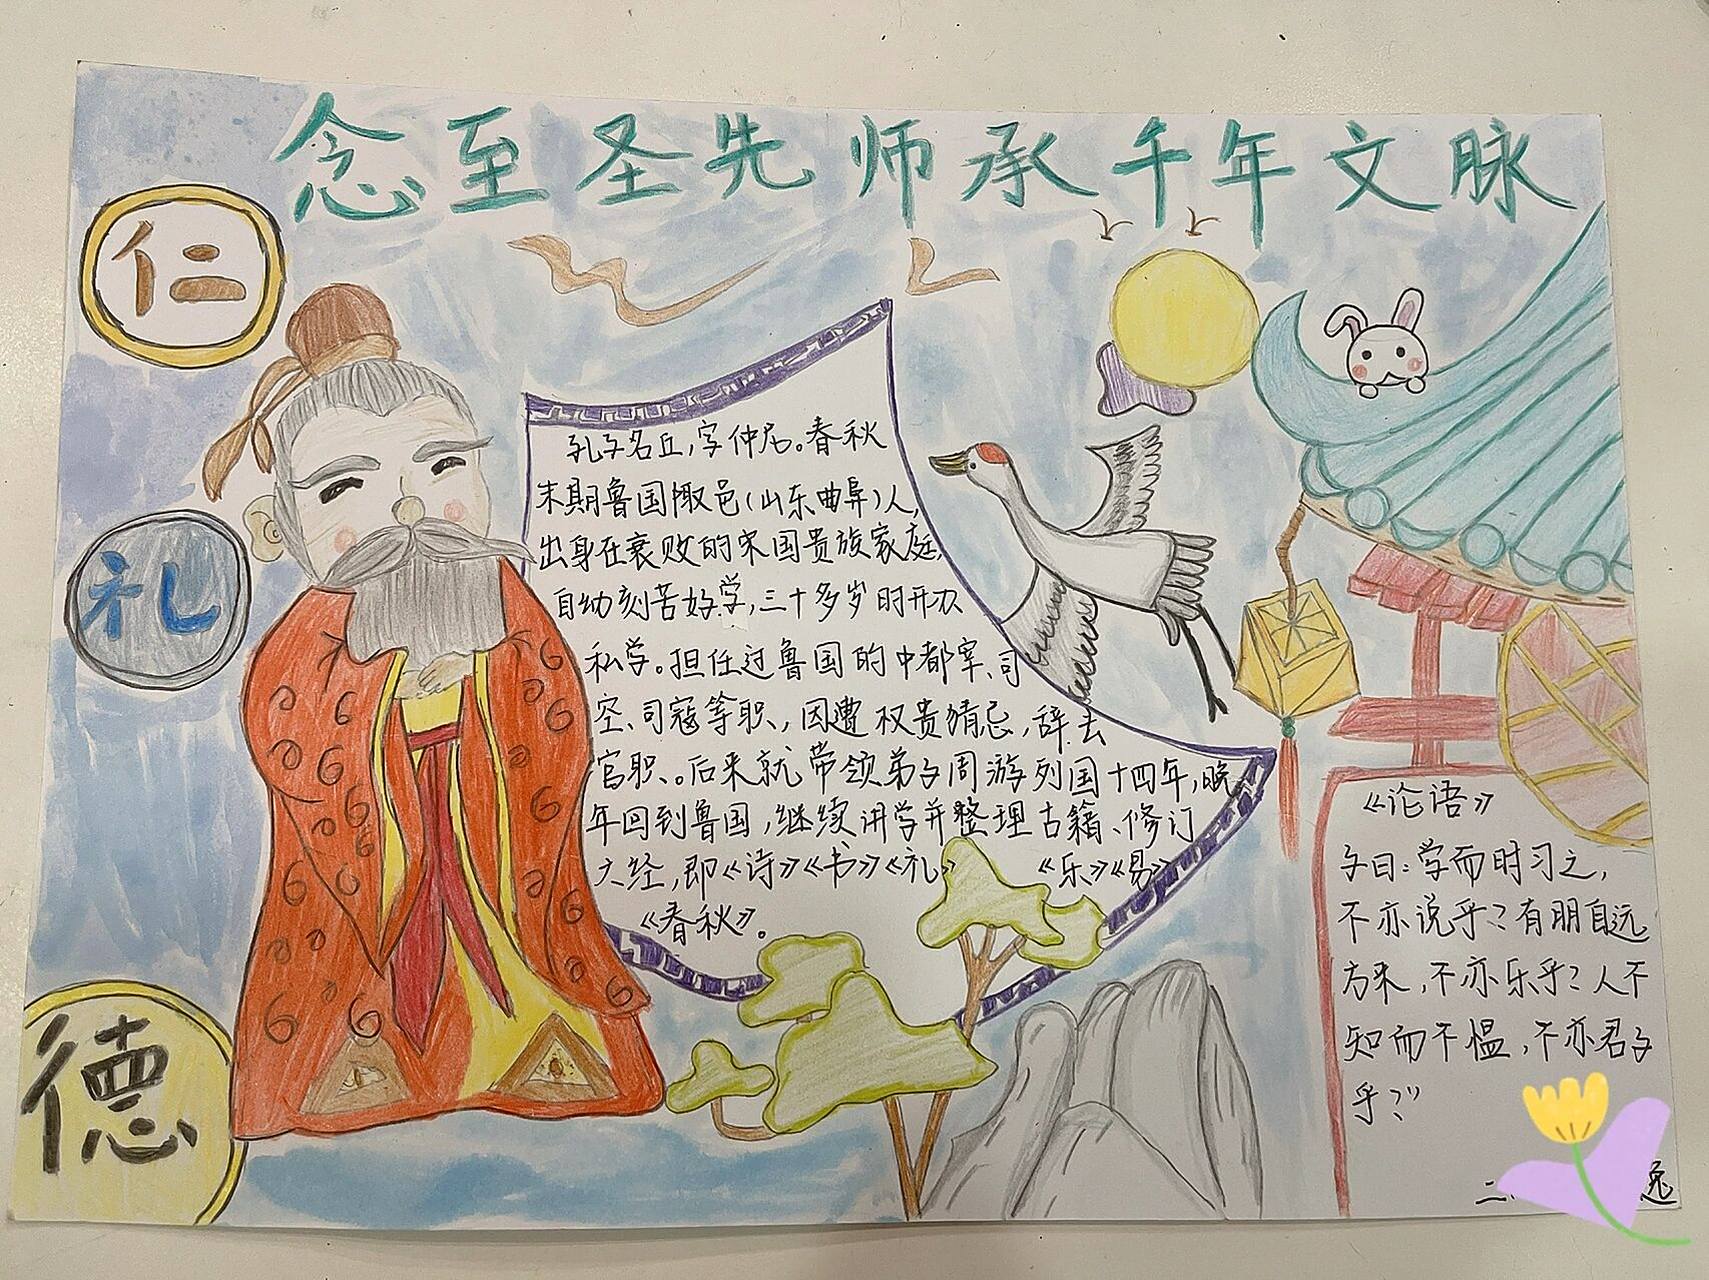 念至圣先师承千年文脉
仁
礼
德
孔子名丘,字仲尼。春秋
末期鲁国陬邑(山东曲阜)人,
出身在衰败的宋国贵族家庭,
自幼刻苦好学,三十多岁时开办
私学。担任过鲁国的中都宰、司
空、司寇等职、,因遭权贵猜忌,辞去
官职、。后来就带领弟子周游列国十四年,晚
年回到鲁国,继续讲学并整理古籍、修订
六经,即《诗》《书》《礼》《乐》《易》
《春秋》。
《论语》
子曰:学而时习之,
不亦说乎?有朋自远
方来,不亦乐乎?人不
知而不愠,不亦君子
乎?”
二 逸